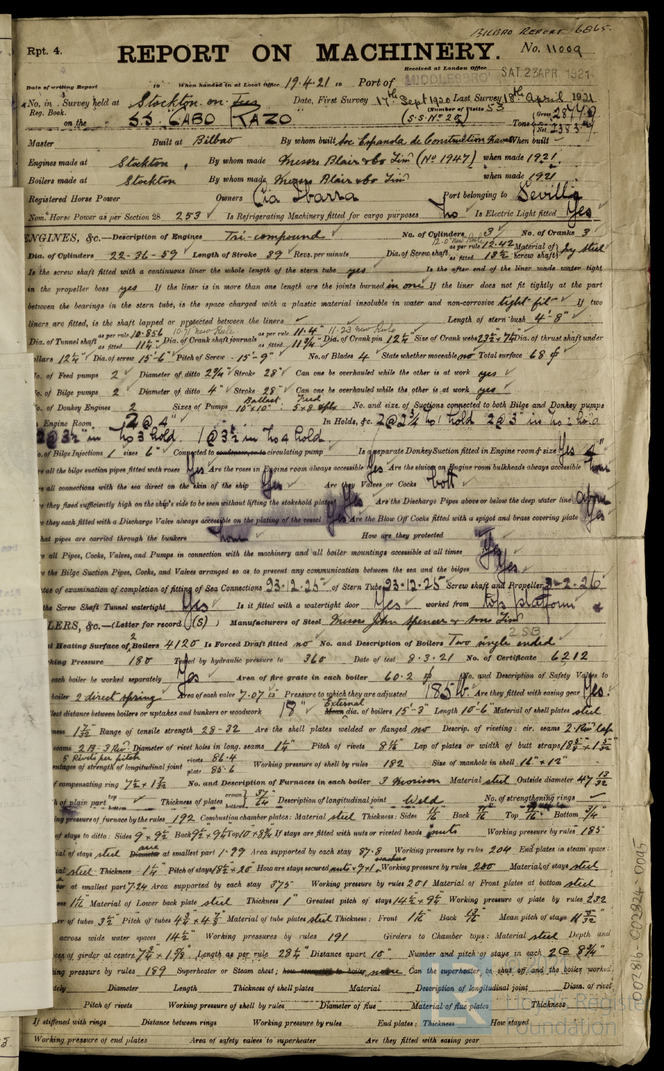 BILBAO REPORT 6865.
Rpt. 4. REPORT ON MACHINERY. No. 11009
Received at London Office
Date of writing Report 19 When handed in at Local Office 19.4.21 Port of MIDDLESBRO' SAT. 23 APR. 1921
No. in Survey held at Stockton-on-Tees Date, First Survey 17th Sept 1920 Last Survey 18th April 1921
Reg. Book. (Number of Visits 53
on the S.S. CABO RAZO (S.S. No 28) Tons Gross Net
Master Built at Bilbao By whom built Soc Espanola de Construccion Naval When built
Engines made at Stockton By whom made Messrs Blair & Co Lim (No 1947) when made 1921.
Boilers made at Stockton By whom made Messrs Blair & Co Lim when made 1921
Registered Horse Power Owners Cia Ibarra Port belonging to Sevilla
Nom. Horse Power as per Section 28 253 Is Refrigerating Machinery fitted for cargo purposes no Is Electric Light fitted Yes
ENGINES, &c.—Description of Engines Tri-compound No. of Cylinders 3 No. of Cranks 3
Dia. of Cylinders 22-36-59 Length of Stroke 39 Revs. per minute Dia. of Screw shaft as per rule 12.42 as fitted Material of screw shaft Ing steel
Is the screw shaft fitted with a continuous liner the whole length of the stern tube yes Is the after end of the liner made water tight
in the propeller boss yes If the liner is in more than one length are the joints burned in one If the liner does not fit tightly at the part
between the bearings in the stern tube, is the space charged with a plastic material insoluble in water and non-corrosive tight fit If two
liners are fitted, is the shaft lapped or protected between the liners Length of stern bush 4'-8"
Dia. of Tunnel shaft as per rule 10.856 as fitted 11¼" Dia. of Crank shaft journals as per rule 11.4" as fitted 11¾" Dia. of Crank pin 12¼" Size of Crank webs Dia. of thrust shaft under
collars 12¼" Dia. of screw 15'-6" Pitch of Screw 15'-9" No. of Blades 4 State whether moveable no Total surface 68
No. of Feed pumps 2 Diameter of ditto 2¾" Stroke 28" Can one be overhauled while the other is at work yes
No. of Bilge pumps 2 Diameter of ditto 4" Stroke 28" Can one be overhauled while the other is at work yes
No. of Donkey Engines 2 Sizes of Pumps Ballast 10"x10" Feed No. and size of Suctions connected to both Bilge and Donkey pumps
Engine Room 2 @ 4" In Holds, &c. 2 @ 3¼" no 1 hold 2 @ 3" in no 2 hold
2 @ 3½" in no 3 hold. 1 @ 3½" in no 4 hold.
No. of Bilge Injections 1 sizes 6" Connected to circulating pump Is a separate Donkey Suction fitted in Engine room & size Yes 4"
Are all the bilge suction pipes fitted with roses Yes Are the roses in Engine room always accessible Yes Are the sluices on Engine room bulkheads always accessible none
Are all connections with the sea direct on the skin of the ship Yes Are they Valves or Cocks both
Are they fixed sufficiently high on the ship's side to be seen without lifting the stokehold plates Yes Are the Discharge Pipes above or below the deep water line above
Are they each fitted with a Discharge Valve always accessible on the plating of the vessel Yes Are the Blow Off Cocks fitted with a spigot and brass covering plate Yes
What pipes are carried through the bunkers none How are they protected
Are all Pipes, Cocks, Valves, and Pumps in connection with the machinery and all boiler mountings accessible at all times Yes
Are the Bilge Suction Pipes, Cocks, and Valves arranged so as to prevent any communication between the sea and the bilges Yes
Dates of examination of completion of fitting of Sea Connections 23-12-25 of Stern Tube 23-12-25 Screw shaft and Propeller 3-2-26
Is the Screw Shaft Tunnel watertight Yes Is it fitted with a watertight door Yes worked from top platform
BOILERS, &c.—(Letter for record (S) Manufacturers of Steel Messrs John Spencer & Sons Lim
2 SB
Total Heating Surface of Boilers 4120 Is Forced Draft fitted no No. and Description of Boilers Two single ended
Working Pressure 180 Tested by hydraulic pressure to 360 Date of test 8.3.21 No. of Certificate 6212
Can each boiler be worked separately Yes Area of fire grate in each boiler 60.2 No. and Description of Safety Valves to
each boiler 2 direct spring Area of each valve 7.07 Pressure to which they are adjusted 185 lb Are they fitted with easing gear Yes
Smallest distance between boilers or uptakes and bunkers or woodwork 18" External dia. of boilers 15'-3" Length 10'-6" Material of shell plates steel
Thickness 1 3/32 Range of tensile strength 28-32 Are the shell plates welded or flanged no Descrip. of riveting: cir. seams 2 Riv Lap
long. seams Diameter of rivet holes in long. seams 1¼" Pitch of rivets 8⅛" Lap of plates or width of butt straps
5 Rivets per pitch
Percentages of strength of longitudinal joint rivets 86.4 plate 85.6 Working pressure of shell by rules 182 Size of manhole in shell 16"x12"
Size of compensating ring No. and Description of Furnaces in each boiler 3 Morison Material steel Outside diameter 47
Length of plain part Thickness of plates Description of longitudinal joint Weld No. of strengthening rings
Working pressure of furnace by the rules 192 Combustion chamber plates: Material steel Thickness: Sides Back Top Bottom
Pitch of stays to ditto: Sides 9x9½ Back Top If stays are fitted with nuts or riveted heads nuts Working pressure by rules 185
Material of stays steel area at smallest part 1.99 Area supported by each stay 87.8 Working pressure by rules 204 End plates in steam space:
Material steel Thickness 1¼ Pitch of stays How are stays secured Working pressure by rules 200 Material of stays steel
at smallest part 7.24 Area supported by each stay 375 Working pressure by rules 201 Material of Front plates at bottom steel
Material of Lower back plate steel Thickness 1" Greatest pitch of stays Working pressure of plate by rules 232
Diameter of tubes 3½" Pitch of tubes Material of tube plates steel Thickness: Front Back Mean pitch of stays
Pitch across wide water spaces 14½" Working pressures by rules 191 Girders to Chamber tops: Material steel Depth and
thickness of girder at centre Length as per rule 28¼ Distance apart 10" Number and pitch of stays in each 2 @ 8¾"
Working pressure by rules 189 Superheater or Steam chest; none Can the superheater be shut off and the boiler worked
separately Diameter Length Thickness of shell plates Material Description of longitudinal joint Diam. of rivet
Pitch of rivets Working pressure of shell by rules Diameter of flue Material of flue plates Thickness
If stiffened with rings Distance between rings Working pressure by rules End plates: Thickness How stayed
Working pressure of end plates Area of safety valves to superheater Are they fitted with easing gear
002816-002826-0045
Lloyd's Register
Foundation